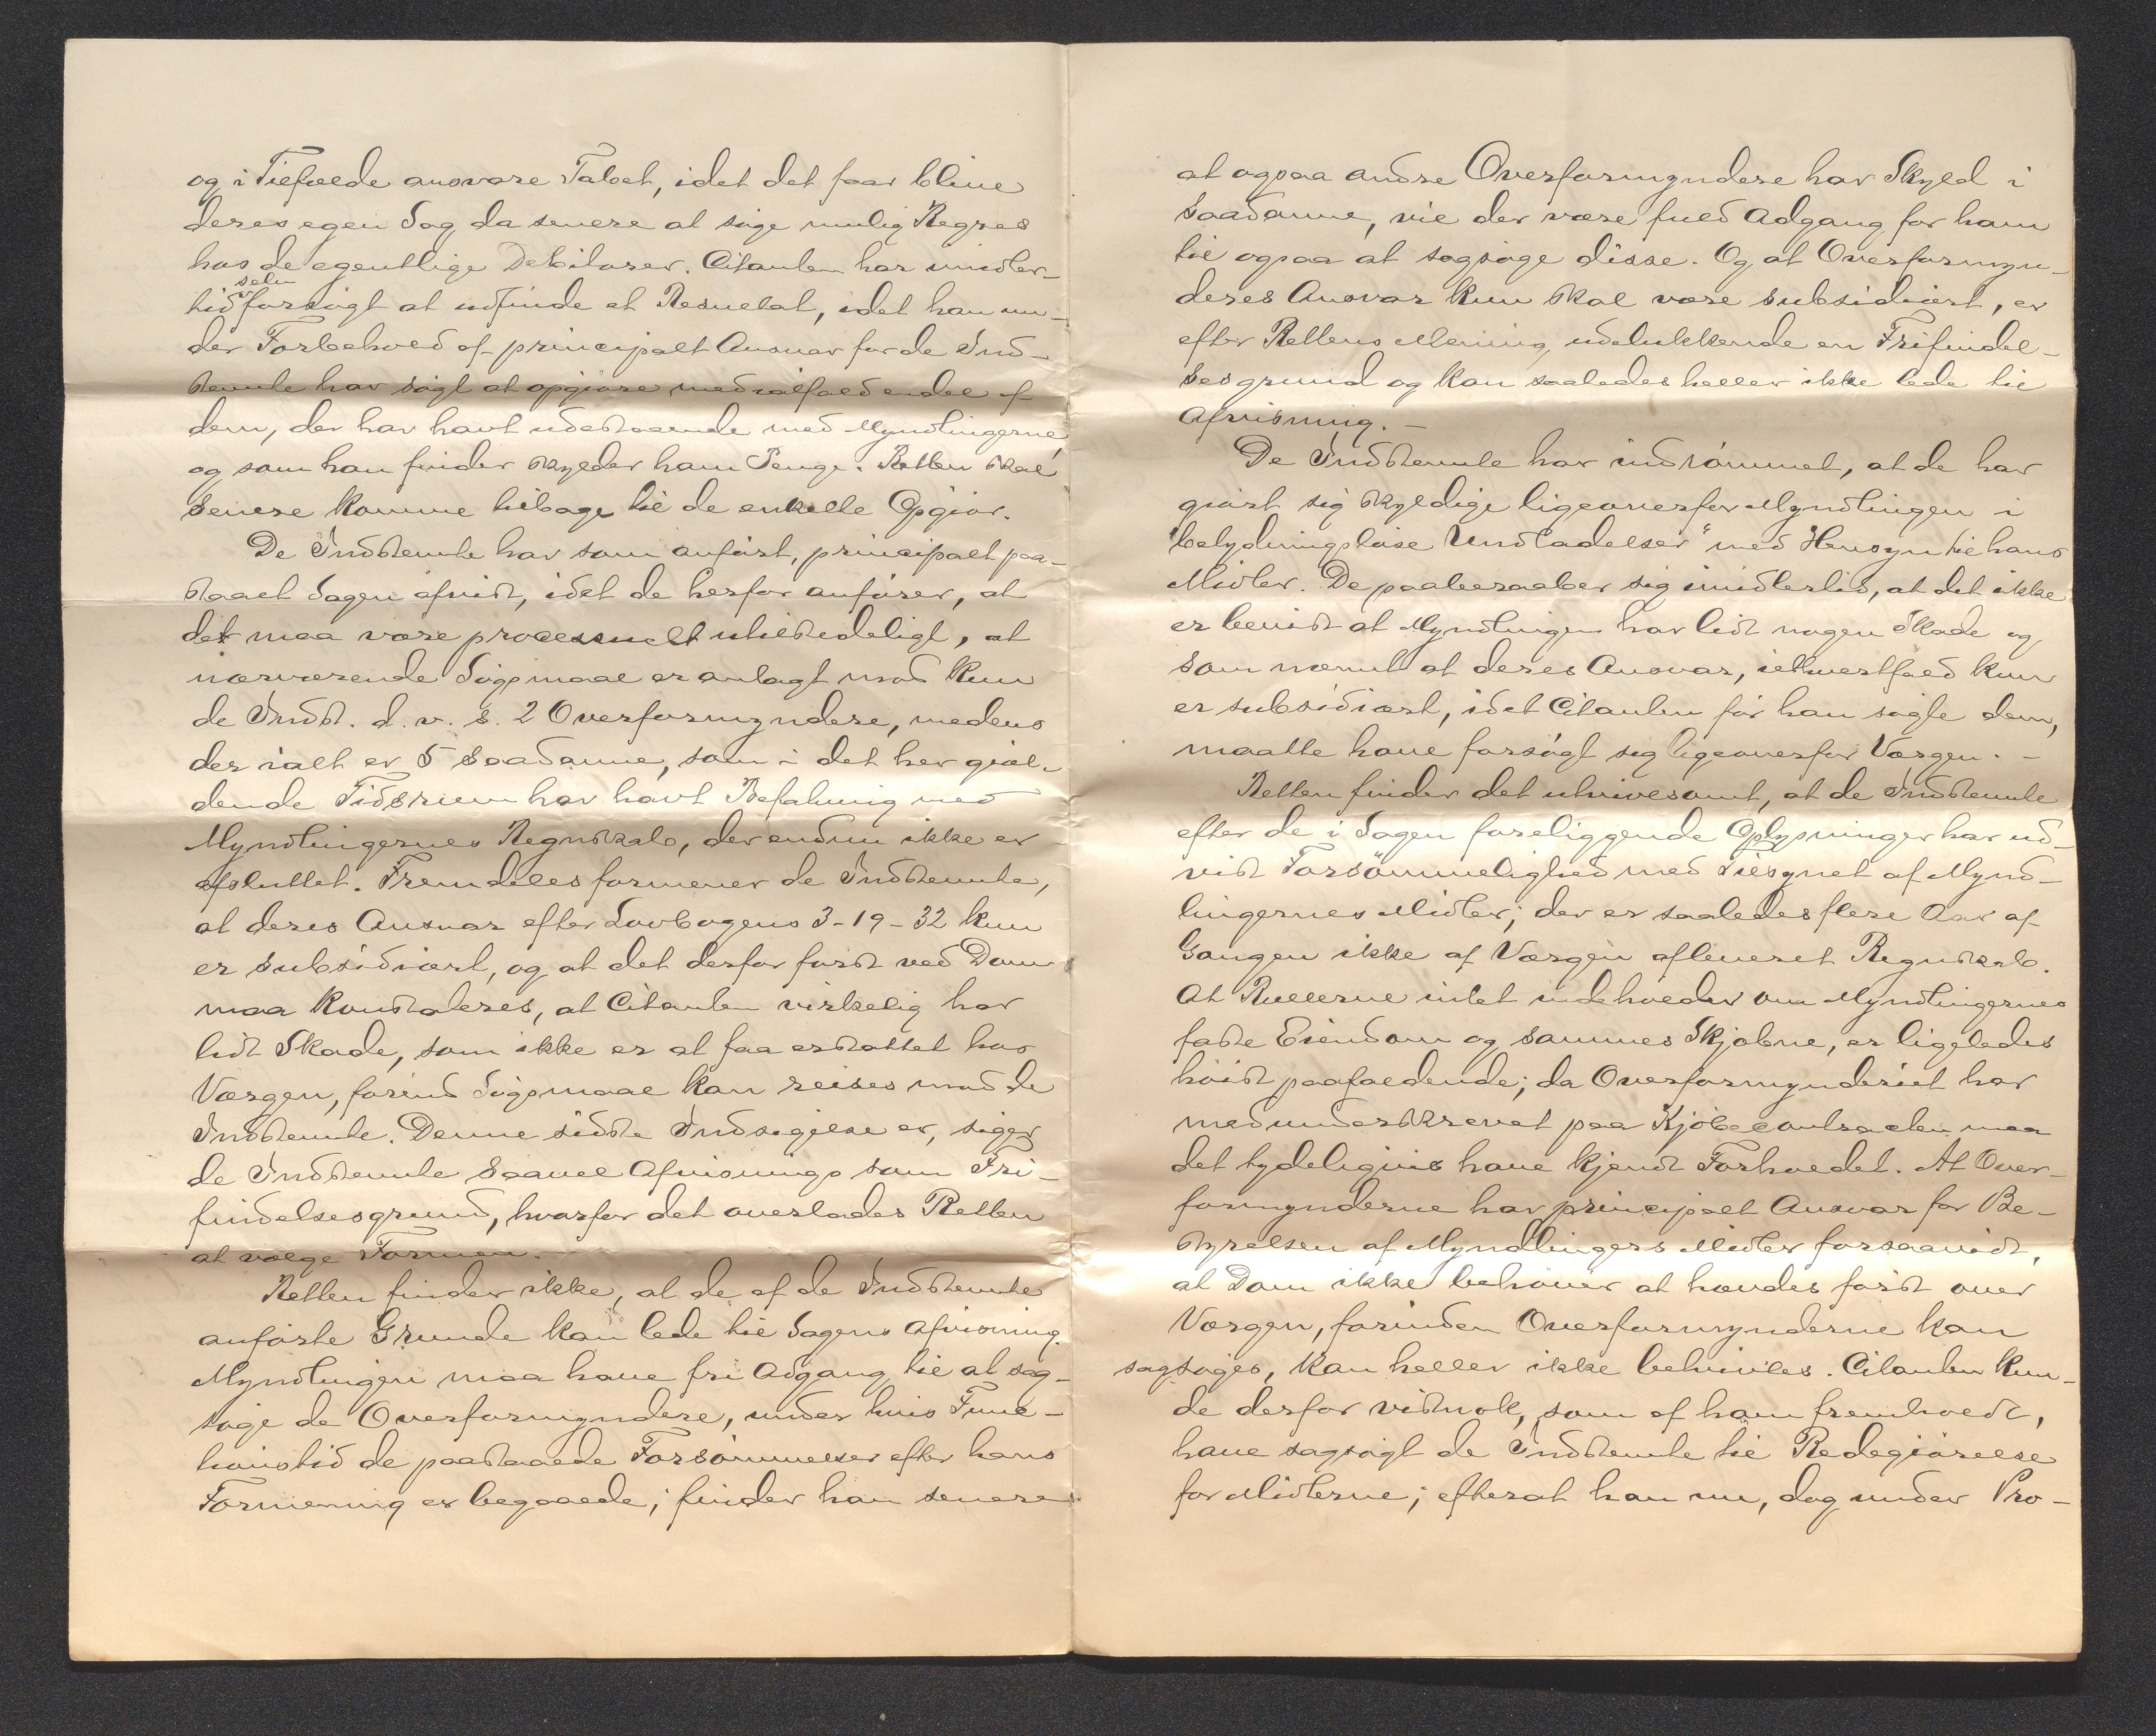 og i Tilfælde ansvare Tabet, idet det faar blive
deres egen Sag da senere at søge mulig Regres
hos de egentlige Debitorer. Citanten har imidler-
selv
tid forsøgt at udfinde et Resultat, idet han un-
der Forbehold af principalt Ansvar for de Ind-
stevnte har søgt at opgjøre med ialfald endel af
dem, der har havt udestaaende med Myndlingerne
og som han finder skylder ham Penge. Retten skal
senere komme tilbage til de enkelte Opgjør.
De Indstevnte har som anført, principalt paa-
staaet Sagen afvist, idet de herfor anfører, at
det maa være processuelt utilstedeligt, at
nærværende Søgsmaal er anlagt mod kun
de Indst. d. v. s. 2 Overformyndere, medens
der ialt er 5 saadanne, som i det her gjæl-
dende Tidsrum har havt Befatning med
Myndlingernes Regnskab, der endnu ikke er
afsluttet. Fremdeles formener de Indstevnte,
at deres Ansvar efter Lovbogens 3-19-32 kun
er subsidiært, og at det derfor først ved Dom
maa konstateres, at Citanten virkelig har
lidt Skade, som ikke er at faa erstattet hos
Værgen, førend Søgsmaal kan reises mod de
Indstevnte. Denne sidste Indsigelse er, siger
de Indstevnte saavel Afvisnings som Fri-
findelsesgrund, hvorfor det overlades Retten
at vælge Formen.
Retten finder ikke, at de af de Indstevnte
anførte Grunde kan lede til Sagens Afvisning.
Myndlingen maa have fri Adgang til at sag-
søge de Overformyndere, under hvis Funk-
tionstid de paastaaede Forsømmelser efter hans
Formening er begaaede; finder han senere
at ogsaa andre Overformyndere har Skyld i
saadanne, vil der være fuld Adgang for ham
til ogsaa at sagsøge disse. Og at Overformyn-
deres Ansvar kun skal være subsidiært, er
efter Rettens Mening udelukkende en Frifindel-
sesgrund og kan saaledes heller ikke lede til
Afvisning. -
De Indstevnte har indrømmet, at de har
gjort sig skyldige ligeoverfor Myndlingen i
"betydningsløse Undladelser" med Hensyn til hans
Midler. De paaberaaber sig imidlertid, at det ikke
er bevist at Myndlingen har lidt nogen Skade og
som nævnt at deres Ansvar, iethvertfald kun
er subsidiært, idet Citanten før han søgte dem,
maatte have forsøgt sig ligeoverfor Værgen. -
Retten finder det utvivlsomt, at de Indstevnte
efter de i Sagen foreliggende Oplysninger har ud-
vist Forsømmelighed med Tilsynet af Mynd-
lingernes Midler; der er saaledes flere Aar af
Gangen ikke af Værgen afleveret Regnskab.
At Rullerne intet indeholder om Myndlingernes
faste Eiendom og sammes Skjæbne, er ligeledes
høist paafaldende; da Overformynderiet har
medunderskrevet paa Kjøbecontracten maa
det tydeligvis have kjendt Forholdet. At Over-
formynderne har principalt Ansvar for Be-
styrelsen af Myndlingers Midler forsaavidt,
at Dom ikke behøver at hændes først over
Værgen, forinden Overformynderne kan
sagsøges, kan heller ikke betvivles. Citanten kun-
de derfor vistnok, som af ham fremholdt,
have sagsøgt de Indstevnte til Redegjørelse
for Midlerne; efterat han nu, dog under Pro-